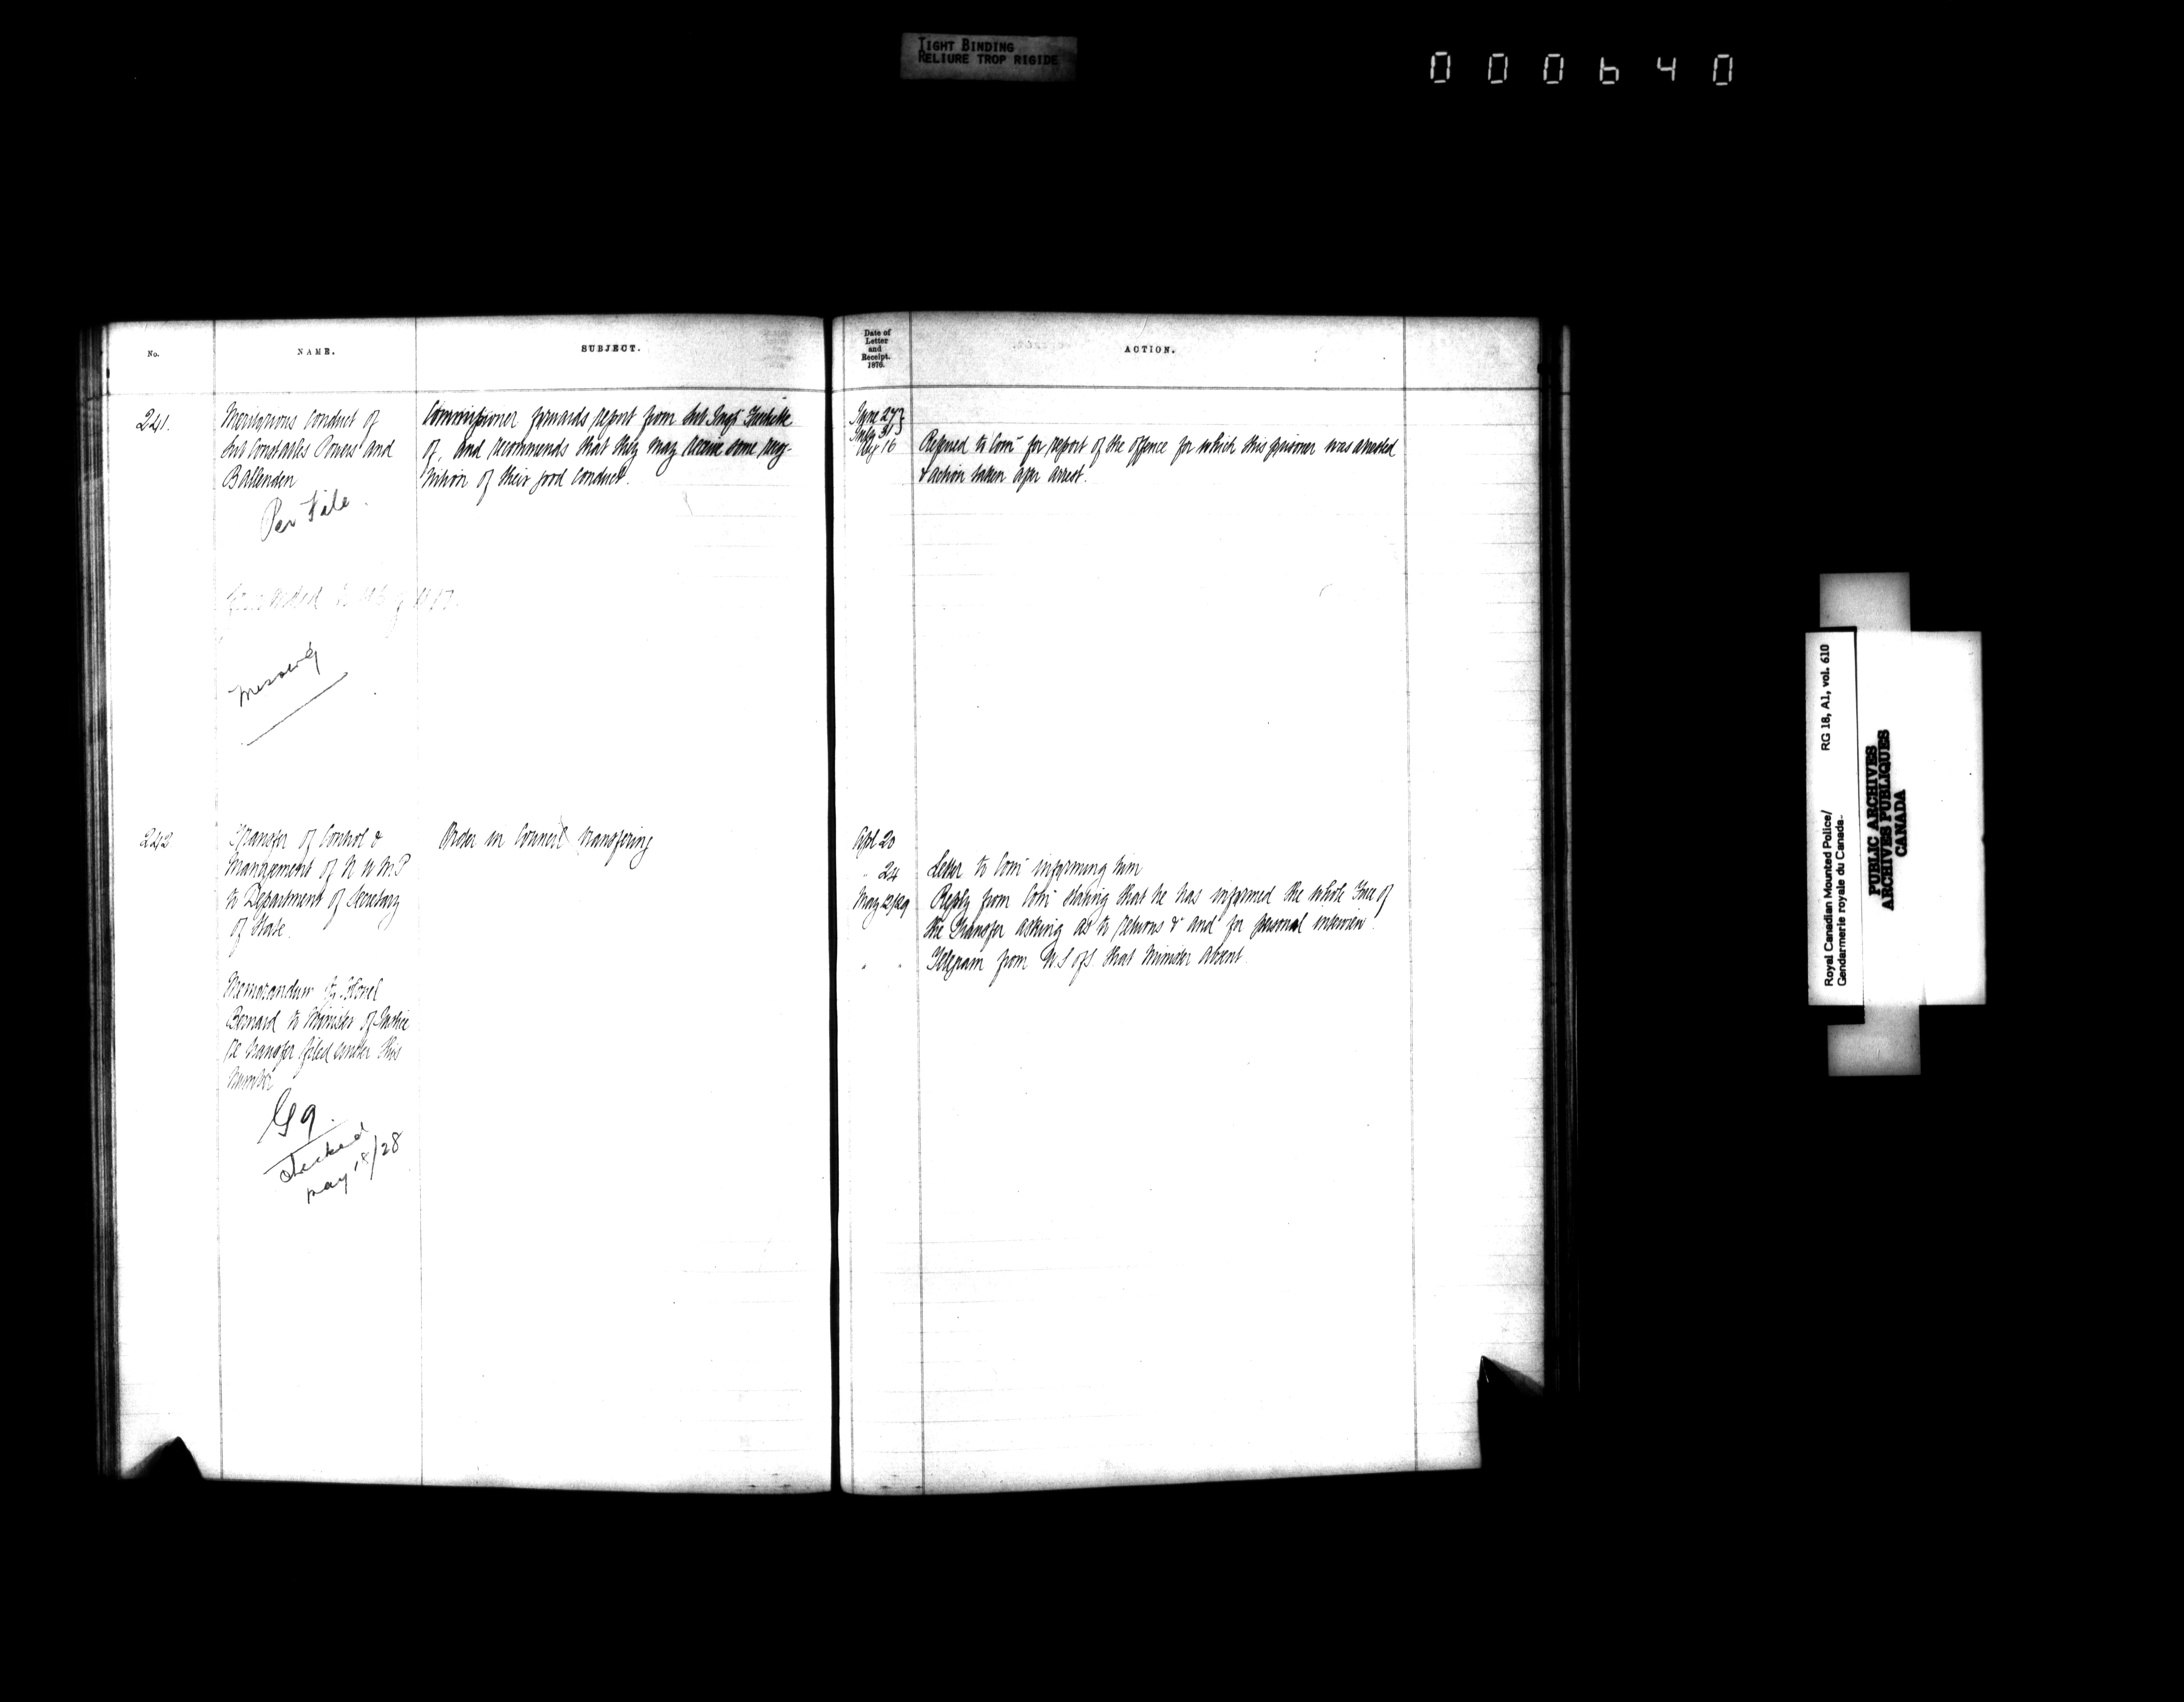 TIGHT BINDING
RELIURE TROP RIGIDE
000640
No.
NAME.
SUBJECT.
Date of
Letter
and
Receipt.
1876.
ACTION.
241.
Meritorious Conduct of
Sub Constables Powers and
Ballenden
Per File.
Missing
Commissioner forwards report from Sub Inspr Frechette
of, and recommends that they may receive some recog-
nition of their good conduct.
June 27
July 31
Aug 16
Referred to Comr for report of the offence for which this prisoner was arrested
& action taken after arrest.
242
Transfer of Control &
Management of N W M P
to Department of Secretary
of State.
Memorandum by Colonel
Bernard to Minister of Justice
re transfer filed under this
number
G 9.
Checked
May 18/28
Order in Council transferring
Apl 20
" 24
Letter to Comr informing him
May 12/29
Reply from Comr stating that he has informed the whole Force of
the transfer asking as to returns & and for personal interview.
" "
Telegram from U.S of S. that Minister absent.
Royal Canadian Mounted Police/
Gendarmerie royale du Canada-
RG 18, A1, vol. 610
PUBLIC ARCHIVES
ARCHIVES PUBLIQUES
CANADA